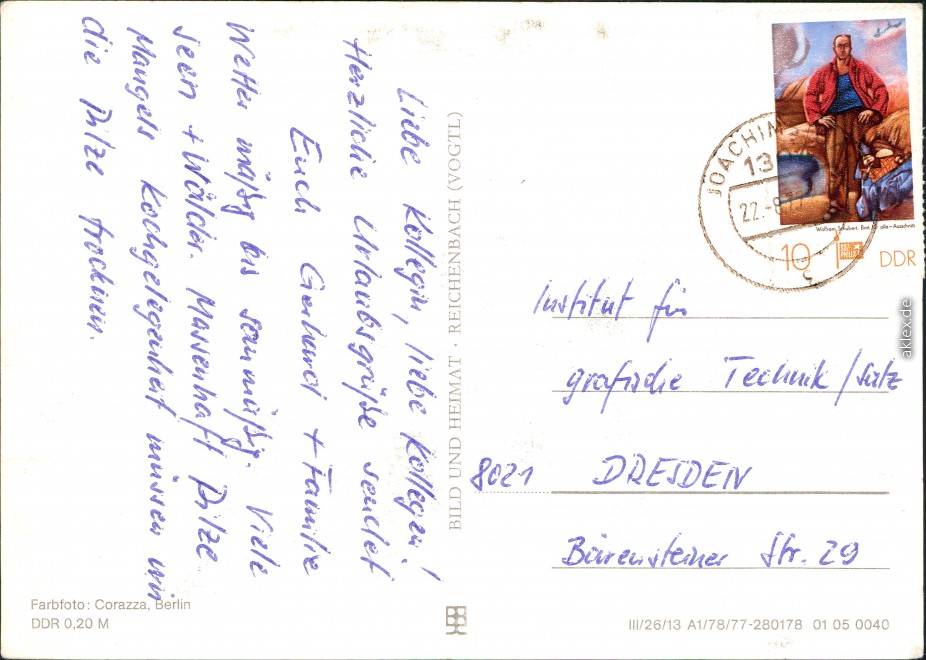 Liebe Kollegin, liebe Kollegen!
Herzliche Urlaubsgrüße sendet
Euch Gerhard + Familie
Wetter mäßig bis saumäßig. Viele
Seen + Wälder. Massenhaft Pilze
Mangels Kochgelegenheit müssen wir
die Pilze trocknen.
Farbfoto: Corazza, Berlin
DDR 0,20 M
BILD UND HEIMAT · REICHENBACH (VOGTL)
JOACHIM
13
22.-8.77
Wolfram Schubert, Brot für alle – Ausschnitt
10
DDR
Institut für
grafische Technik/Satz
8021 DRESDEN
Bärensteiner Str. 29
III/26/13 A1/78/77-280178 01 05 0040
aklex.de